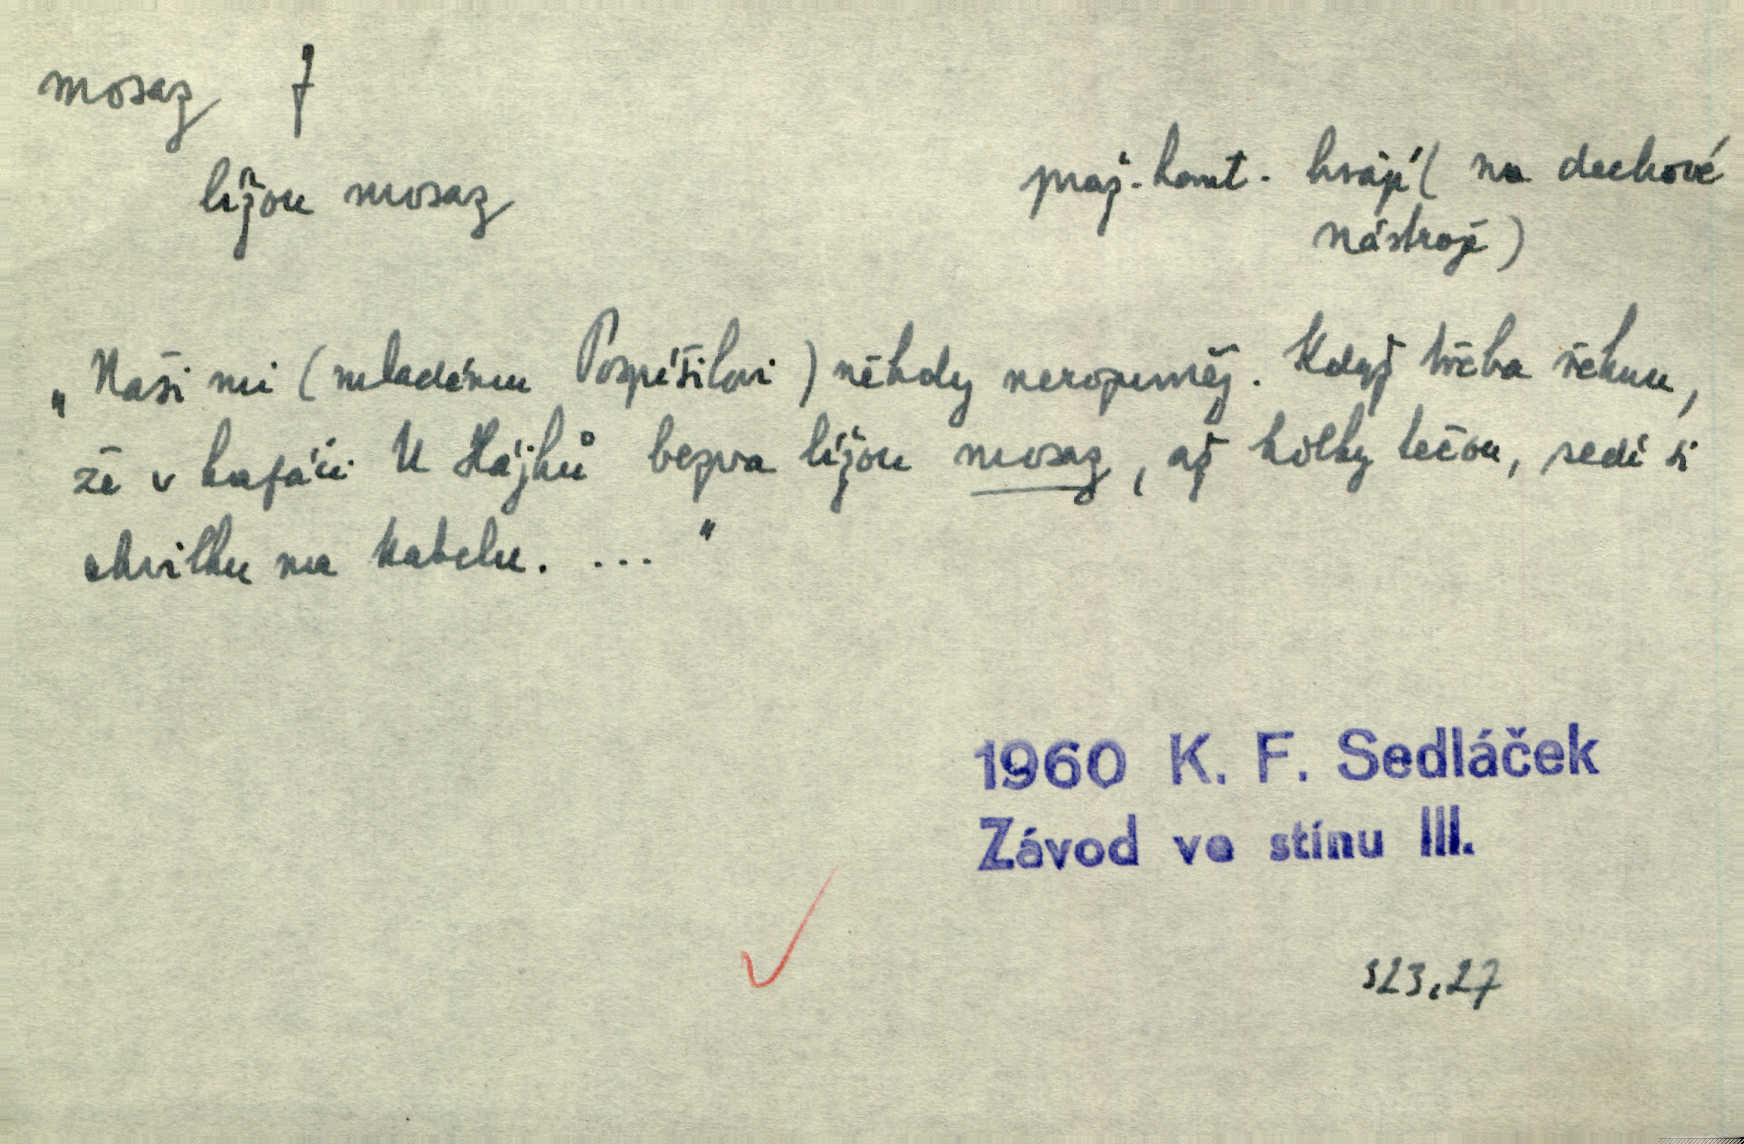 mosaz f
lížou mosaz
praž. kont. hrají (na dechové
nástroje)
„Naši mi (mladému Pospíšilovi) někdy nerozuměj. Když třeba řeknu,
že v kafáči U Hájků bezva lížou mosaz, až holky tečou, sedí si
chvilku na kabelu. ... "
1960 K. F. Sedláček
Závod ve stínu III.
323,27